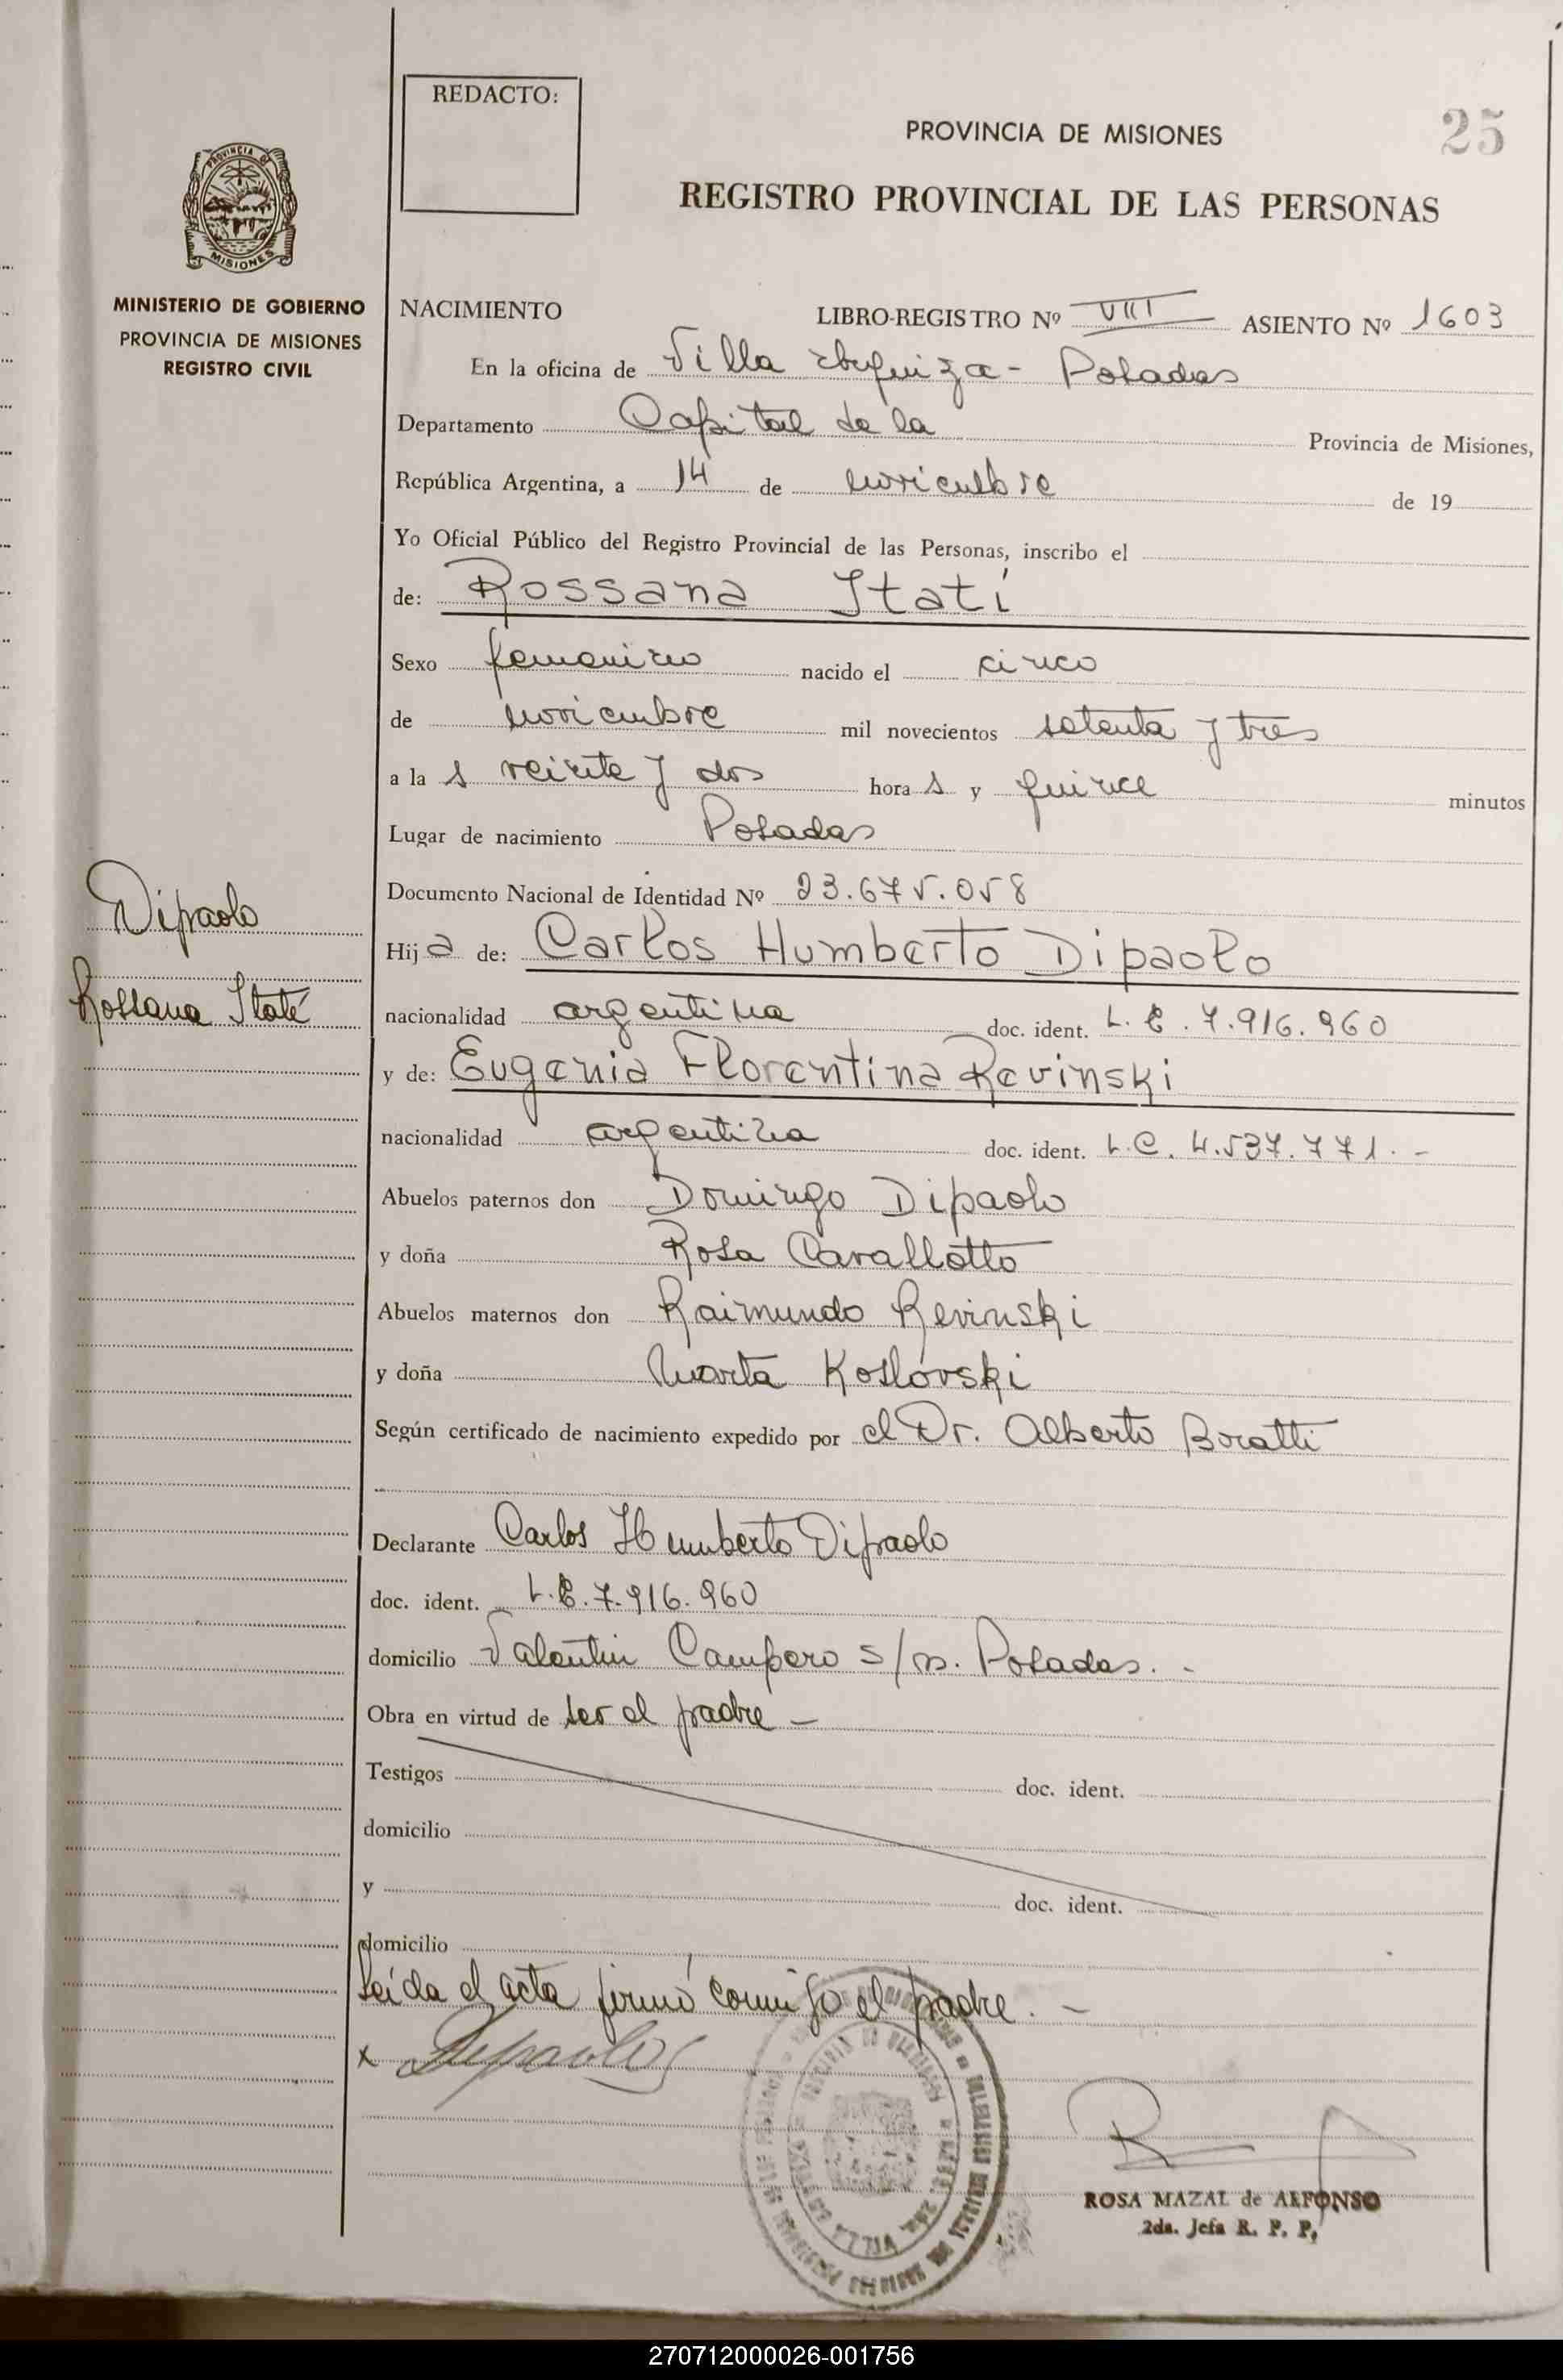 REDACTO:
PROVINCIA DE MISIONES
25
REGISTRO PROVINCIAL DE LAS PERSONAS
PROVINCIA DE
MISIONES
MINISTERIO DE GOBIERNO
PROVINCIA DE MISIONES
REGISTRO CIVIL
NACIMIENTO LIBRO-REGISTRO Nº VIII ASIENTO Nº 1603
En la oficina de Villa Urquiza - Posadas
Departamento Capital de la Provincia de Misiones,
República Argentina, a 14 de noviembre de 19
Yo Oficial Público del Registro Provincial de las Personas, inscribo el
de: Rossana Itatí
Sexo femenino nacido el cinco
de noviembre mil novecientos setenta y tres
a la s veinte y dos hora s y quince minutos
Lugar de nacimiento Posadas
Documento Nacional de Identidad Nº 23.675.058
Dipaolo
Hij a de: Carlos Humberto Dipaolo
Rossana Itatí
nacionalidad argentina doc. ident. L.E. 7.916.960
y de: Eugenia Florentina Revinski
nacionalidad argentina doc. ident. L.C. 4.537.771.-
Abuelos paternos don Domingo Dipaolo
y doña Rosa Cavallotto
Abuelos maternos don Raimundo Revinski
y doña Marta Koslovski
Según certificado de nacimiento expedido por el Dr. Alberto Boratti
Declarante Carlos Humberto Dipaolo
doc. ident. L.E. 7.916.960
domicilio Valentin Campero s/n. Posadas.-
Obra en virtud de ser el padre -
Testigos doc. ident.
domicilio
y doc. ident.
domicilio
Leída el acta firmó conmigo el padre. -
x Dipaolo
ROSA MAZAL de ALFONSO
2da. Jefa R. P. P.
270712000026-001756